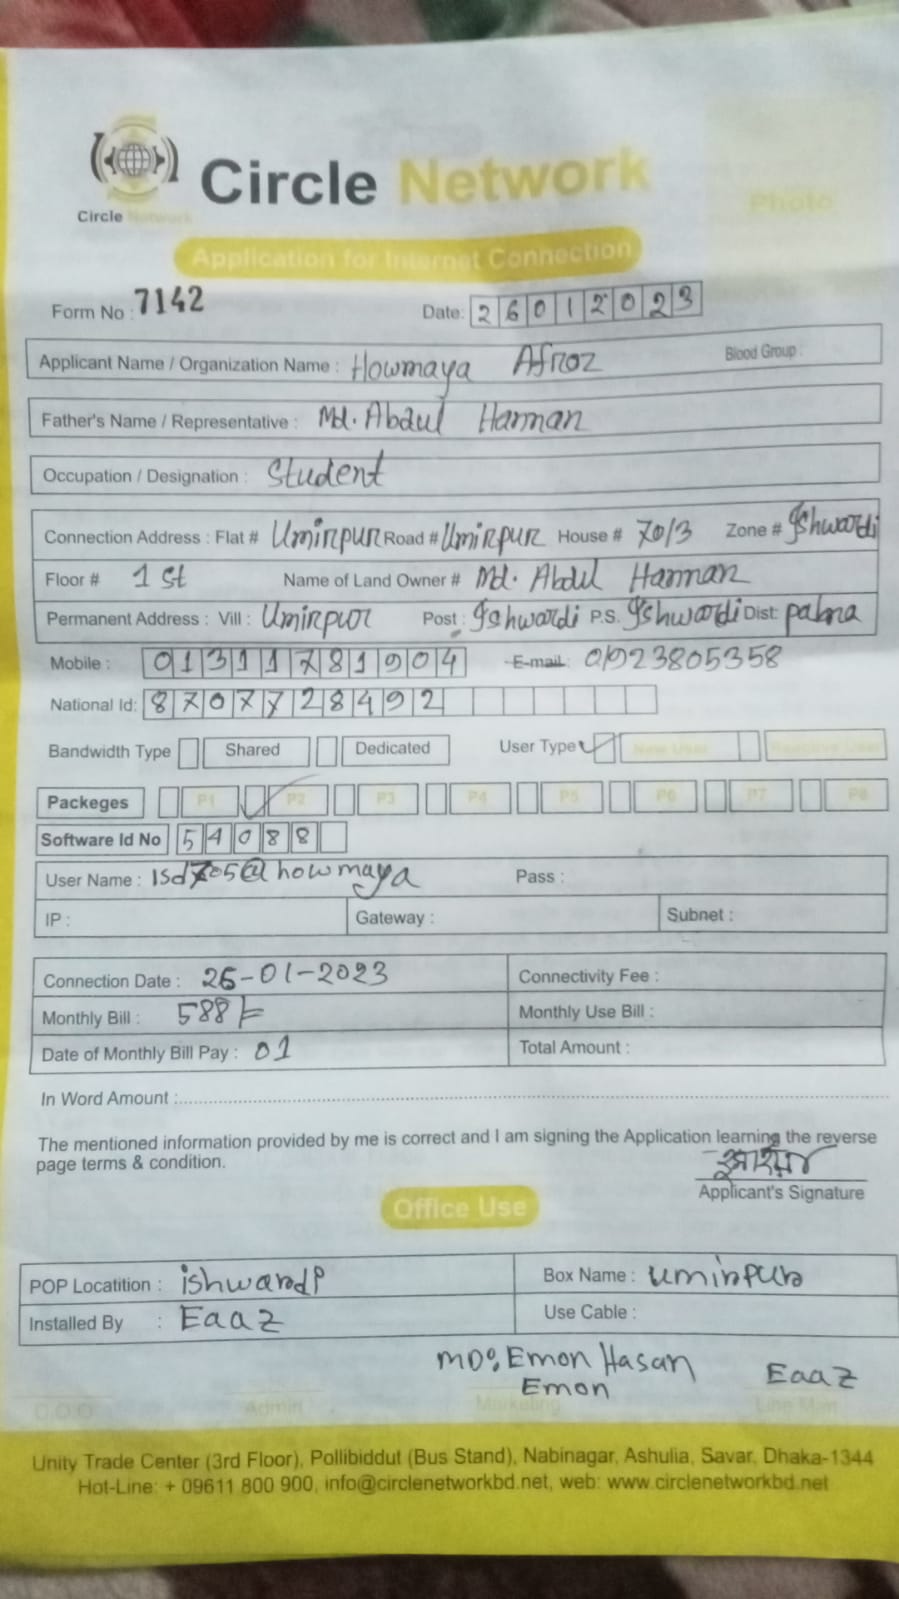 Circle Network
Circle Network
Photo
Application for Internet Connection
Form No : 7142 Date: 26012023
Applicant Name / Organization Name : Howmaya Afroz Blood Group :
Father's Name / Representative : Md. Abdul Hannan
Occupation / Designation : Student
Connection Address : Flat # Umirpur Road # Umirpur House # 70/3 Zone # Ishwardi
Floor # 1st Name of Land Owner # Md. Abdul Hannan
Permanent Address : Vill : Umirpur Post : Ishwardi P.S. Ishwardi Dist: pabna
Mobile : 01311781904 E-mail: 01923805358
National Id: 8707728492
Bandwidth Type Shared Dedicated User Type New User
Packeges P1 P2 P3 P4 P5 P6 P7 P8
Software Id No 54088
User Name : isd705@howmaya Pass :
IP : Gateway : Subnet :
Connection Date : 26-01-2023 Connectivity Fee :
Monthly Bill : 588/= Monthly Use Bill :
Date of Monthly Bill Pay : 01 Total Amount :
In Word Amount :
The mentioned information provided by me is correct and I am signing the Application learning the reverse
page terms & condition.
Applicant's Signature
Office Use
POP Locatition : ishwardi Box Name : umirpur
Installed By : Eaaz Use Cable :
MD: Emon Hasan
Emon Eaaz
C.O.O Admin Marketing Line Man
Unity Trade Center (3rd Floor), Pollibiddut (Bus Stand), Nabinagar, Ashulia, Savar, Dhaka-1344
Hot-Line: + 09611 800 900, info@circlenetworkbd.net, web: www.circlenetworkbd.net